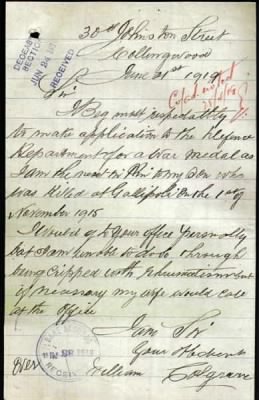 30 Johnston Street
Collingwood
June 21st 1919
DECEASED
SECTION
JUN 24 191
RECEIVED
Sir
I Beg most respectatily
to make application to the Defence
Department for a War medal as
I am the next of kin my Son who
was killed at Gallipoli on the 1st of
November 1915
I would go to your office personally
but I am unable to do so through
being cripped with Rheumatism but
if necessary my wife would call
at the office
I am Sir
Your Obedient
William Colgrave
Over